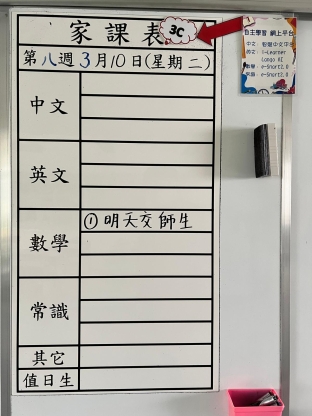 家課表 3C
第八週3月10日(星期二)
中文
英文
數學
① 明天交師生
常識
其它
值日生
自主學習 網上平台
i-Learner
e-Smart2.0
e-Smart2.0